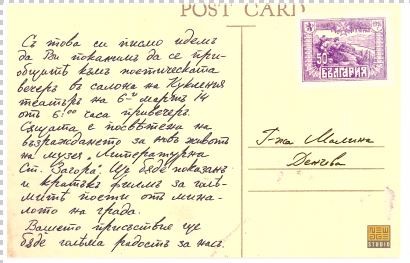 POST CARD
Съ това си писмо идемъ
да Ви поканимъ да се при-
общите къмъ поетическата
вечеръ въ салона на Кукления
театъръ на 6-ти мартъ 14
отъ 6.00 часа привечеръ.
Същата е посвѣтена на
възраждането за новъ животъ
на музея „Литературна
Ст. Загора". Ще бѫде показанъ
и кратъкъ филмъ за голѣ-
митѣ поети отъ мина-
лото на града.
Вашето присѫтствие ще
бѫде голѣма радость за насъ.
50
БЪЛГАРИЯ
Г-жа Малина
Денчова
NEW
STUDIO